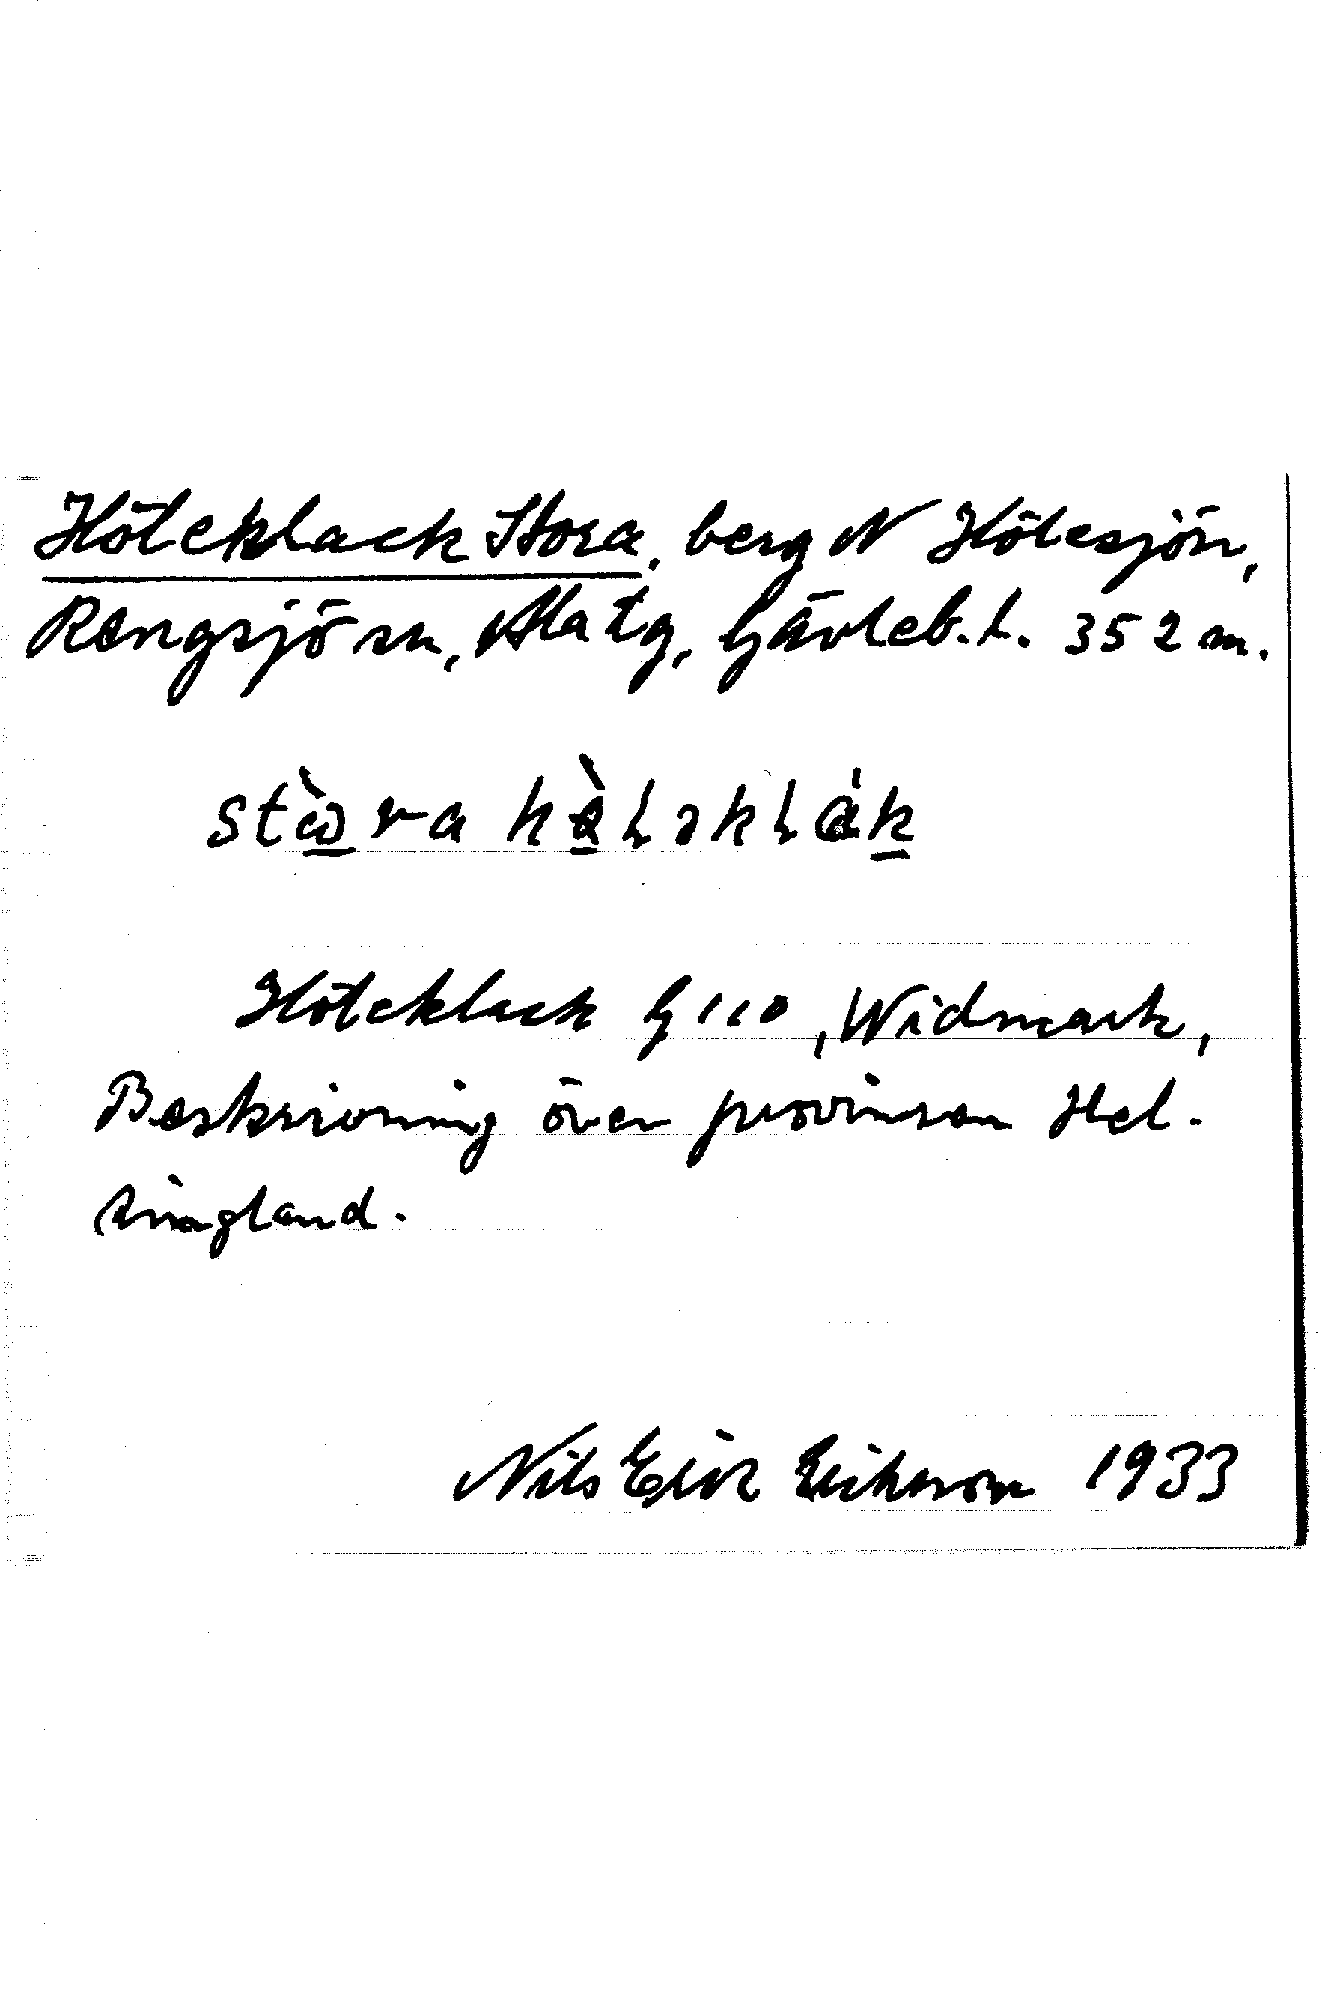 Höleklack Stora, berg N Hölesjön,
Rengsjö sn, Ala tg, Gävleb. l. 352 m.
Höleklack G 110, Widmark,
Beskrivning över provinsen Hel-
singland.
Nils Eric Eriksson 1933